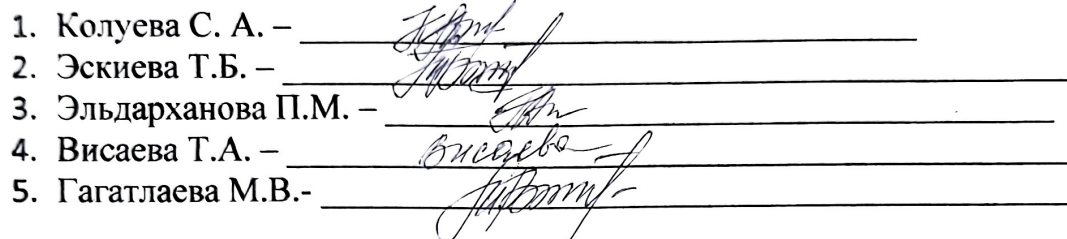 1. Колуева С. А. –
2. Эскиева Т.Б. –
3. Эльдарханова П.М. –
4. Висаева Т.А. – Висаева
5. Гагатлаева М.В.-